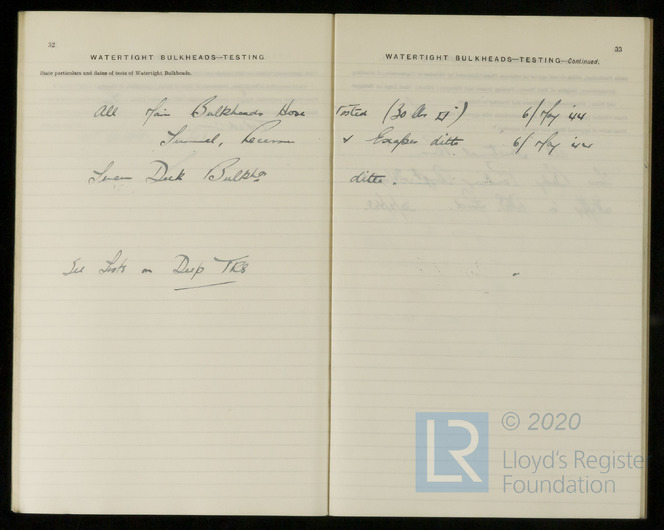 32
WATERTIGHT BULKHEADS—TESTING
State particulars and dates of tests of Watertight Bulkheads.
All Main Bulkheads Hose
Tunnel, Recess
Deck Bulkhds
See Tests on Deep TKS
33
WATERTIGHT BULKHEADS—TESTING—Continued.
Tested (30 lbs □") 6/May '44
& Escapes ditto 6/May '44
ditto.
LR
© 2020
Lloyd's Register
Foundation